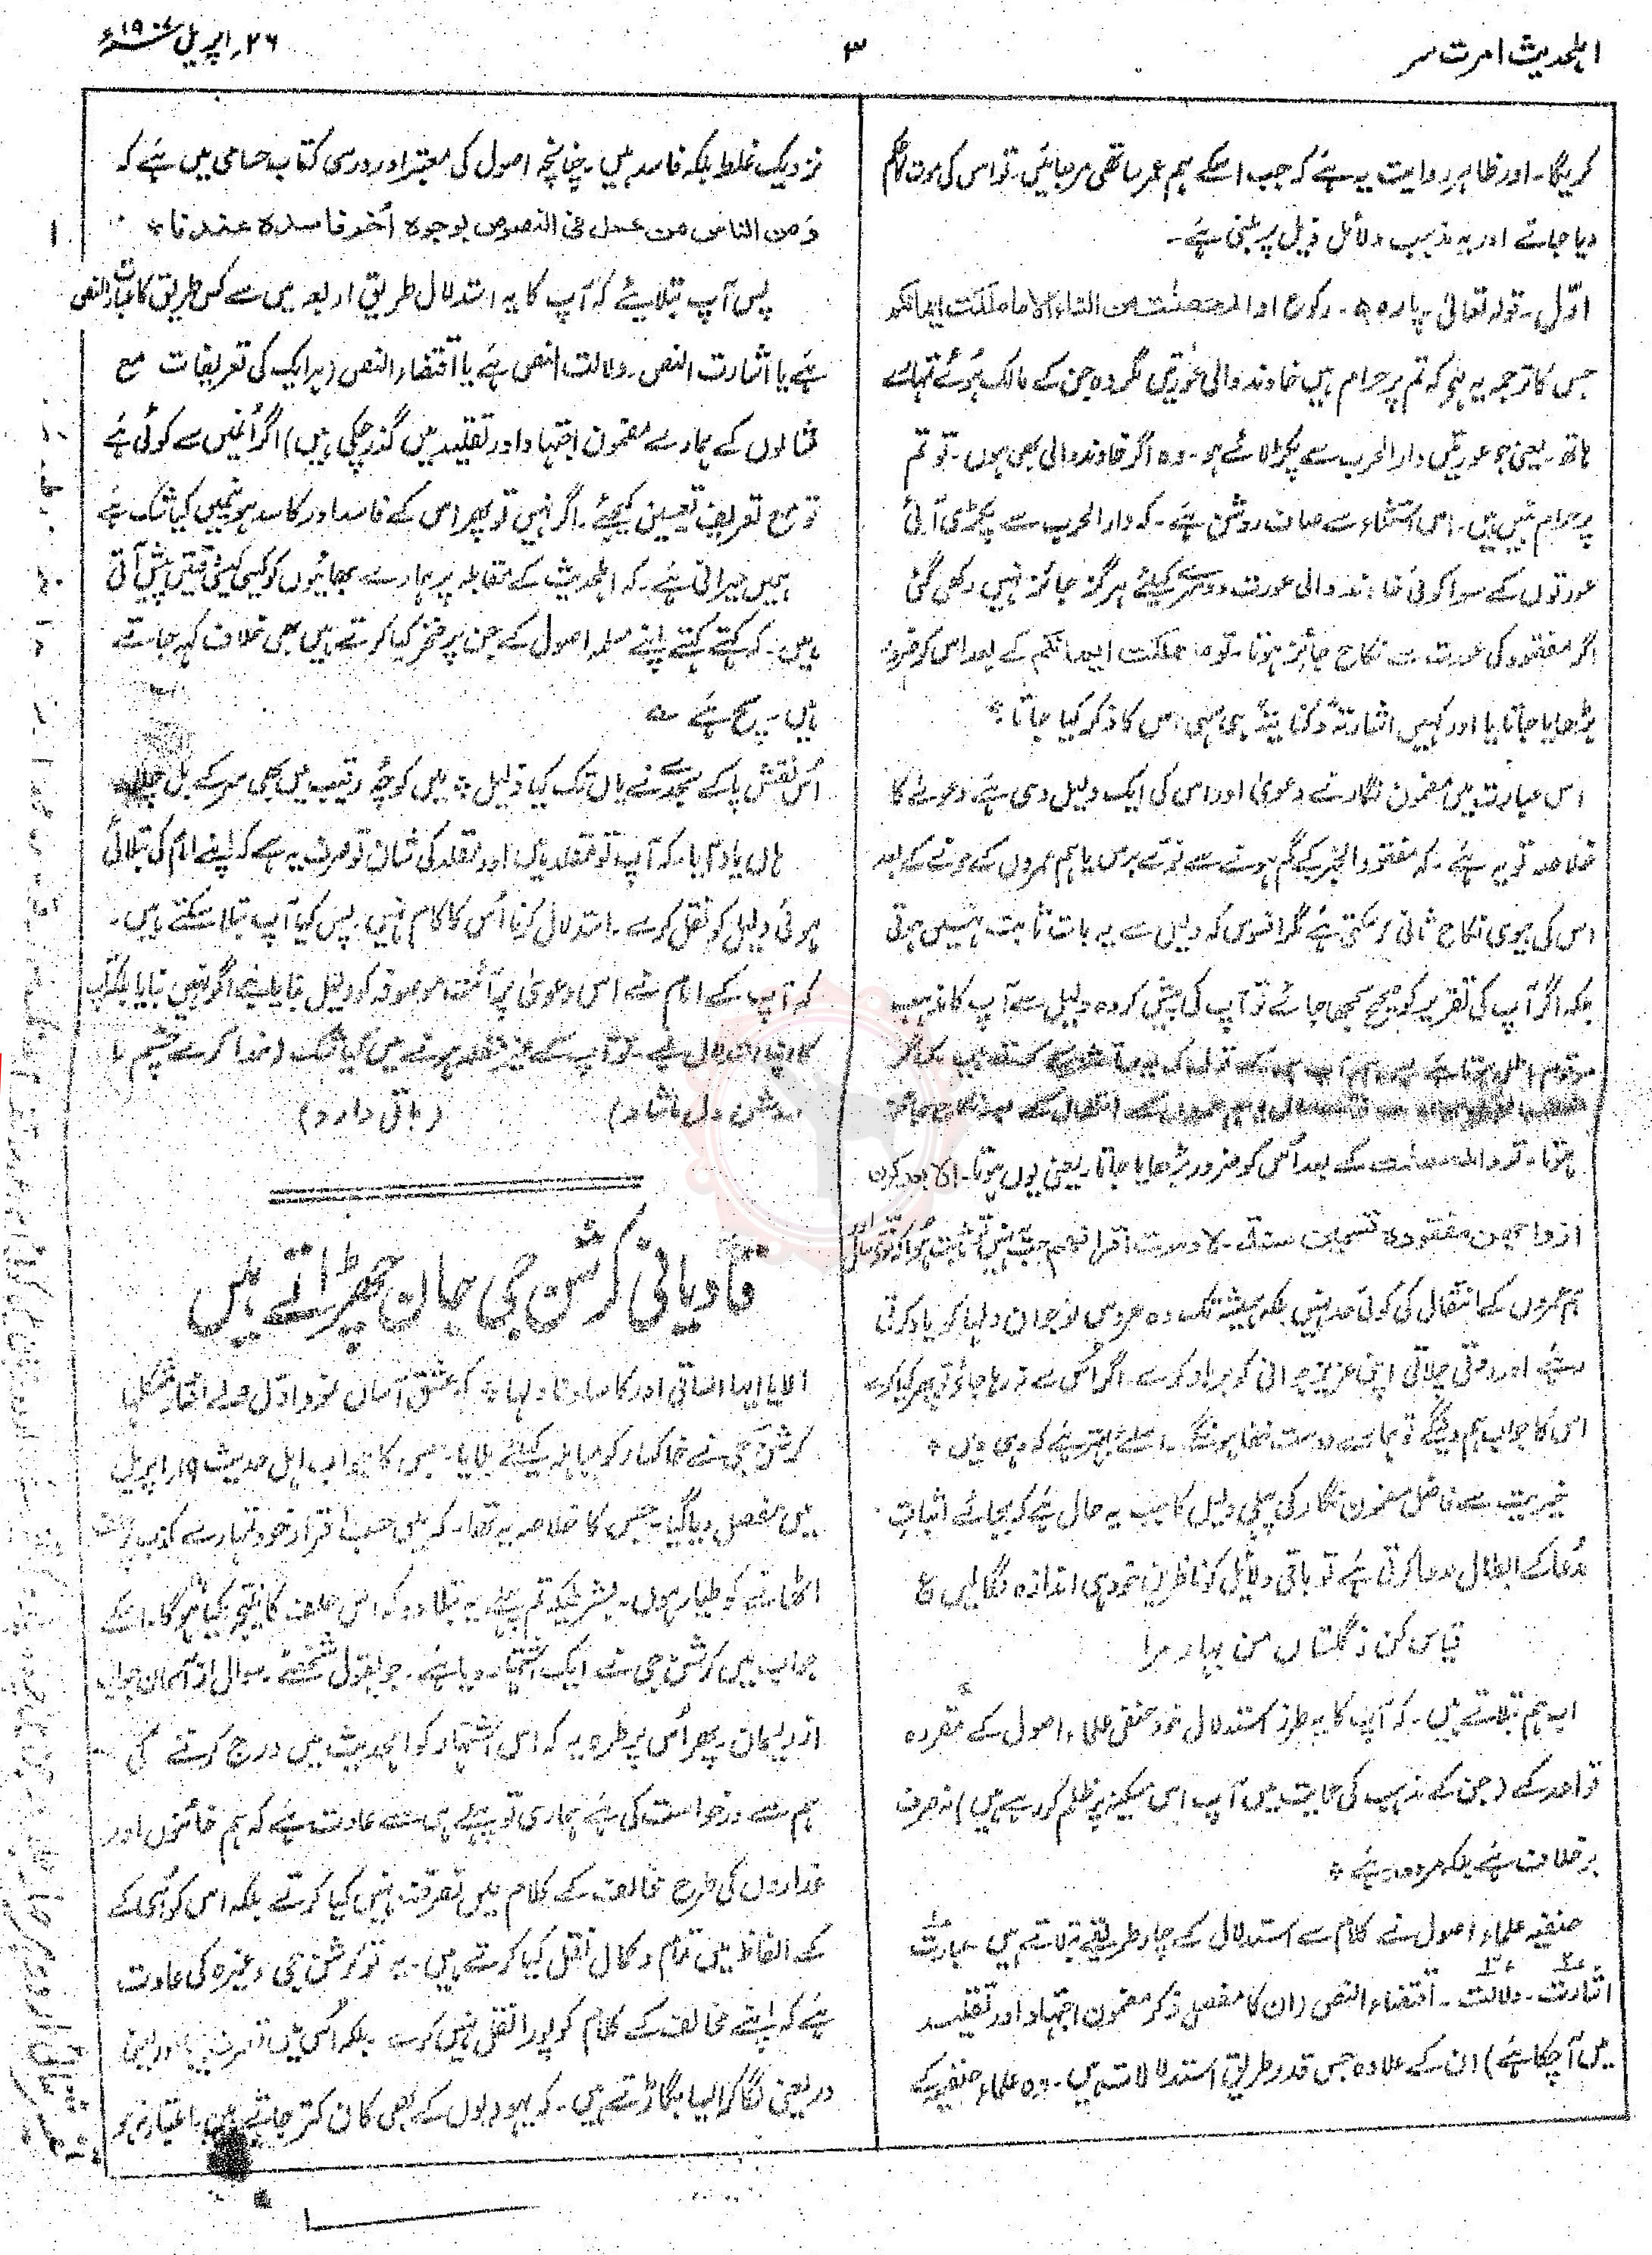 اہلحدیث امرت سر
۳
۲۶ اپریل ۱۹۰۷ء
کریگا۔ اور ظاہر روایت یہ ہے کہ جب اسکے ہم عمر ساتھی مرجائیں۔ تو اس کی موت کا حکم
دیا جائے اور یہ مذہب دلائل ذیل پر مبنی ہے۔
اوّل۔ قولہ تعالیٰ۔ پارہ ۵۔ رکوع ۱ والمحصنٰت من النساء الا ما ملکت ایمانکم
جس کا ترجمہ یہ ہے کہ تم پر حرام ہیں خاوند والی عورتیں مگر وہ جن کے مالک ہوئے تمہارے
ہاتھ۔ یعنی جو عورتیں دار الحرب سے پکڑ لائے ہو۔ وہ اگر خاوند والی بھی ہوں۔ تو تم
پر حرام نہیں ہیں۔ اس استثناء سے صاف روشن ہے۔ کہ دار الحرب سے پکڑی آئی
عورتوں کے سوا کوئی خاوند والی عورت دوسرے کیلئے ہرگز جائز نہیں رکھی گئی
اگر مفقود کی عورت سے نکاح جائز ہوتا۔ تو ما ملکت ایمانکم کے بعد اس کو ضرور
بڑھایا جاتا یا اور کہیں اشارتہً و کنایتہً ہی سہی اس کا ذکر کیا جاتا۔
اس عبارت میں مضمون نگار نے دعویٰ اور اس کی ایک دلیل دی ہے دعوے کا
خلاصہ تو یہ ہے۔ کہ مفقود الخبر کے گم ہونے سے نوے برس یا ہم عمروں کے مرنے کے بعد
اس کی بیوی نکاح ثانی کر سکتی ہے مگر افسوس کہ دلیل سے یہ بات ثابت نہیں ہوتی
بلکہ اگر آپ کی تقریر کو صحیح سمجھی جائے تو آپ کی پیش کردہ دلیل سے آپ کا مذہب
مرقوم باطل ہوتا ہے ہم آپ ہی کے قول کی یوں تشریح کرتے ہیں کہ اگر
سال یا ہم عمروں کے انتقال کے بعد نکاح جائز
ہوتا۔ تو والمحصنٰت کے بعد اس کو ضرور بڑھایا جاتا۔ یعنی یوں ہوتا۔ الا ان یکون
ازواجہن مفقودۃ تسعین سنۃ۔ لا و موت اقرانہم جب نہیں تو ثابت ہوا کہ نوے سال اور
ہم عمروں کے انتقال کی کوئی حد نہیں بلکہ ہمیشہ تک وہ عروس نوجوان دلہا کو یاد کرتی
رہے اور روتی چلاتی اپنی عزیز جوانی کو برباد کرے۔ اگر اس سے نہ رہا جائے تو پھر کیا کرے
اس کا جواب ہم دینگے تو ہمارے دوست خفا ہونگے۔ اسلئے بہتر ہے کہ وہی دیں۔
خیریت سے فاضل مضمون نگار کی پہلی دلیل کا جب یہ حال ہے کہ بجائے اثبات
مدعا کے ابطال مدعا کرتی ہے تو باقی دلائل کو ناظرین خود ہی اندازہ لگالیں ع
قیاس کن ز گلستاں من بہار مرا
اب ہم بتلاتے ہیں۔ کہ آپ کا یہ طرز استدلال خود حنفی علماء اصول کے مقررہ
قواعد کے (جن کے مذہب کی حمایت میں آپ اس مسکینہ پر ظلم کر رہے ہیں) نہ صرف
برخلاف ہے بلکہ مردود ہے۔
حنفیہ علماء اصول نے کلام سے استدلال کے چار طریقے بتلائے ہیں۔ عبارت
اشارت۔ دلالت۔ اقتضاء النص (ان کا مفصل ذکر مضمون اجتہاد اور تقلید
میں آچکا ہے) ان کے علاوہ جس قدر طریق استدلالات ہیں۔ وہ علماء حنفیہ کے
نزدیک غلط بلکہ فاسد ہیں۔ چنانچہ اصول کی معتبر اور درسی کتاب حسامی میں ہے کہ
ومن الناس من عمل فی النصوص بوجوہ اُخر فاسدۃ عندنا۔
پس آپ بتلایئے کہ آپ کا یہ استدلال طریق اربعہ میں سے کس طریق کا عبارت النص
ہے یا اشارت النص۔ دلالت النص ہے یا اقتضاء النص (ہر ایک کی تعریفات مع
مثالوں کے ہمارے مضمون اجتہاد اور تقلید میں گذر چکی ہیں) اگر انہیں سے کوئی ہے
تو مع تعریف تعیین کیجئے۔ اگر نہیں تو پھر اس کے فاسد اور کاسد ہونیمیں کیا شک ہے
ہمیں حیرانی ہے۔ کہ اہلحدیث کے مقابلہ پر ہمارے بھائیوں کو کیسی کیسی دقتیں پیش آتی
ہیں۔ کہ کہتے کہتے اپنے مسلمہ اصول کے جن پر فخر کیا کرتے ہیں بھی خلاف کہہ جاتے
ہیں۔ سچ ہے ؎
اُس نقش پا کے سجدے نے یاں تک کیا ذلیل ۔ میں کوچۂ رقیب میں بھی سر کے بل
ہاں یاد آیا۔ کہ آپ تو مقلد ہیں اور مقلد کی شان تو صرف یہ ہے کہ اپنے امام کی بتلائی
ہوئی دلیل کو نقل کرے۔ استدلال کرنا اُس کا کام نہیں۔ پس کیا آپ بتلا سکتے ہیں۔
کہ آپ کے امام نے اس دعویٰ پر آئت موصوفہ کو دلیل بنایا ہے اگر نہیں بنایا بلکہ آپ
کا اپنا استدلال ہے۔ تو آپ کے غیر مقلد ہونے میں کیا شک (خدا کرے چشم ما
روشن دل ماشاد)
(باقی دارد)
قادیانی کرشن جی جان چھڑاتے ہیں
الا یا ایہا الساقی ادر کاسا و ناولہا ۔ کہ عشق آساں نمود اوّل ولے افتاد مشکلہا
کرشن جی نے خاکسار کو مباہلہ کیلئے بلایا۔ جس کا جواب اہل حدیث ۱۹ اپریل
میں مفصل دیا گیا۔ جس کا خلاصہ یہ تھا۔ کہ میں حسب اقرار خود تمہارے کذب پر حلف
اٹھانے کو طیار ہوں۔ بشرطیکہ تم پہلے یہ بتلا دو کہ اس حلف کا نتیجہ کیا ہوگا۔ اسکے
جواب میں کرشن جی نے ایک اشتہار دیا ہے۔ جو بقول شخصے۔ سوال از آسمان جواب
از ریسمان۔ پھر اُس پر طرہ یہ کہ اس اشتہار کو اہلحدیث میں درج کرنے کی
ہم سے درخواست کی ہے ہماری تو پہلے ہی سے عادت ہے کہ ہم خائنوں اور
غداروں کی طرح مخالف کے کلام میں تصرف نہیں کیا کرتے بلکہ اس کو اسی کے
کے الفاظ میں تمام و کمال نقل کیا کرتے ہیں۔ یہ تو کرشن جی وغیرہ کی عادت
ہے کہ اپنے مخالف کے کلام کو پورا نقل نہیں کرتے بلکہ اُس میں تصرف بیجا اور اپنی
در یعنی لگا کر ایسا بگاڑتے ہیں۔ کہ یہودیوں کے بھی کان کتر جاتے ہیں۔ اعتبار نہ ہو